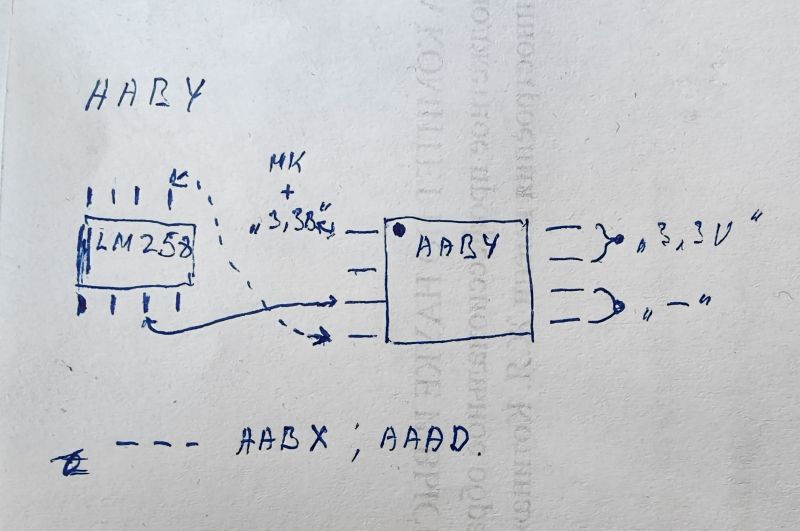 AABY
МК
+
"3,3В"
LM258
AABY
"3,3V"
"—"
--- AABX; AAAD.